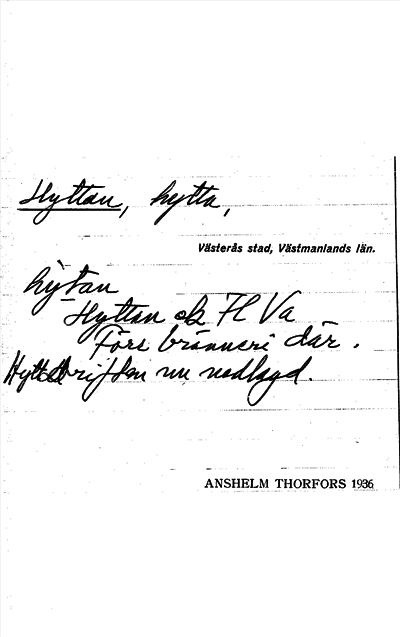 Hyttan, hytta,
Västerås stad, Västmanlands län.
hy̍tan
Hyttan ek 7H Va
Förr bränneri där.
Hyttdriften nu nedlagd.
ANSHELM THORFORS 1936